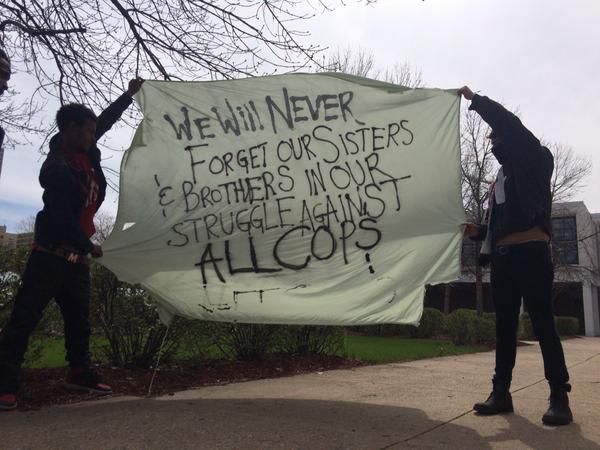 WE WILL NEVER
FORGET OUR SISTERS
& BROTHERS IN OUR
STRUGGLE AGAINST
ALL COPS!